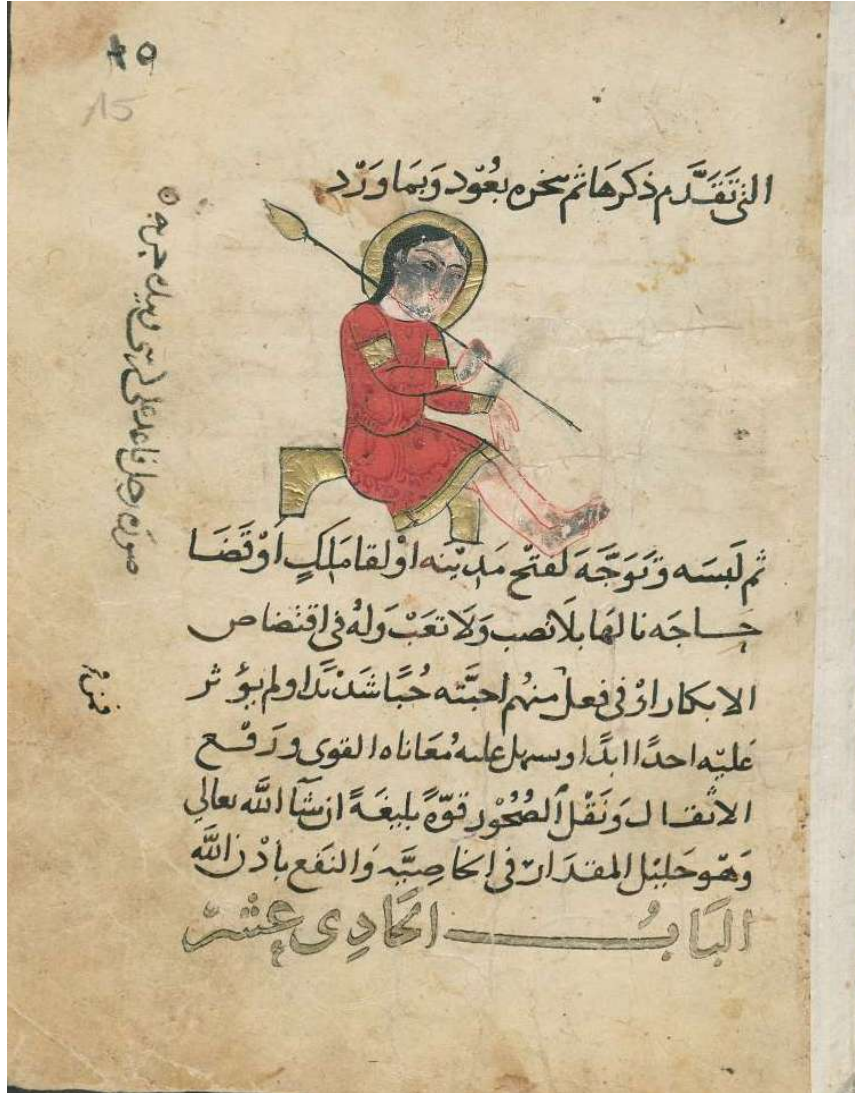 ١٥
15
التى تَقَدَّم ذكرهَا ثم بخره بعُود وَبمَا وَرْد
صورة رجل قاعد على كرسى وبيده حربه
ثم لَبسَه وَتَوَجَّهَ لفتح مَدِينه اوْلقا مَلكٍ اوْقَضَا
حَاجَه نالهَا بلَا نصب وَلَا تعَبْ وَلهُ فى اقتضاص
الابكار اوْ فى فعل منهُم احبَّته حُبًا شَدْيدًا ولم يؤثر
عَليْه احدًا ابدًا ويسهل عليه مُعَاناه القوى وَرَفْع
الاثقال وَنَقْل الصُخُور قوّةً بليغَةً ان شَآ اللَّه تعالى
وَهْو جَليْل المقدَار فى الخاصِيَّه وَالنفع باذن اللَّه
البَابُ الحَادِى عِشَرْ